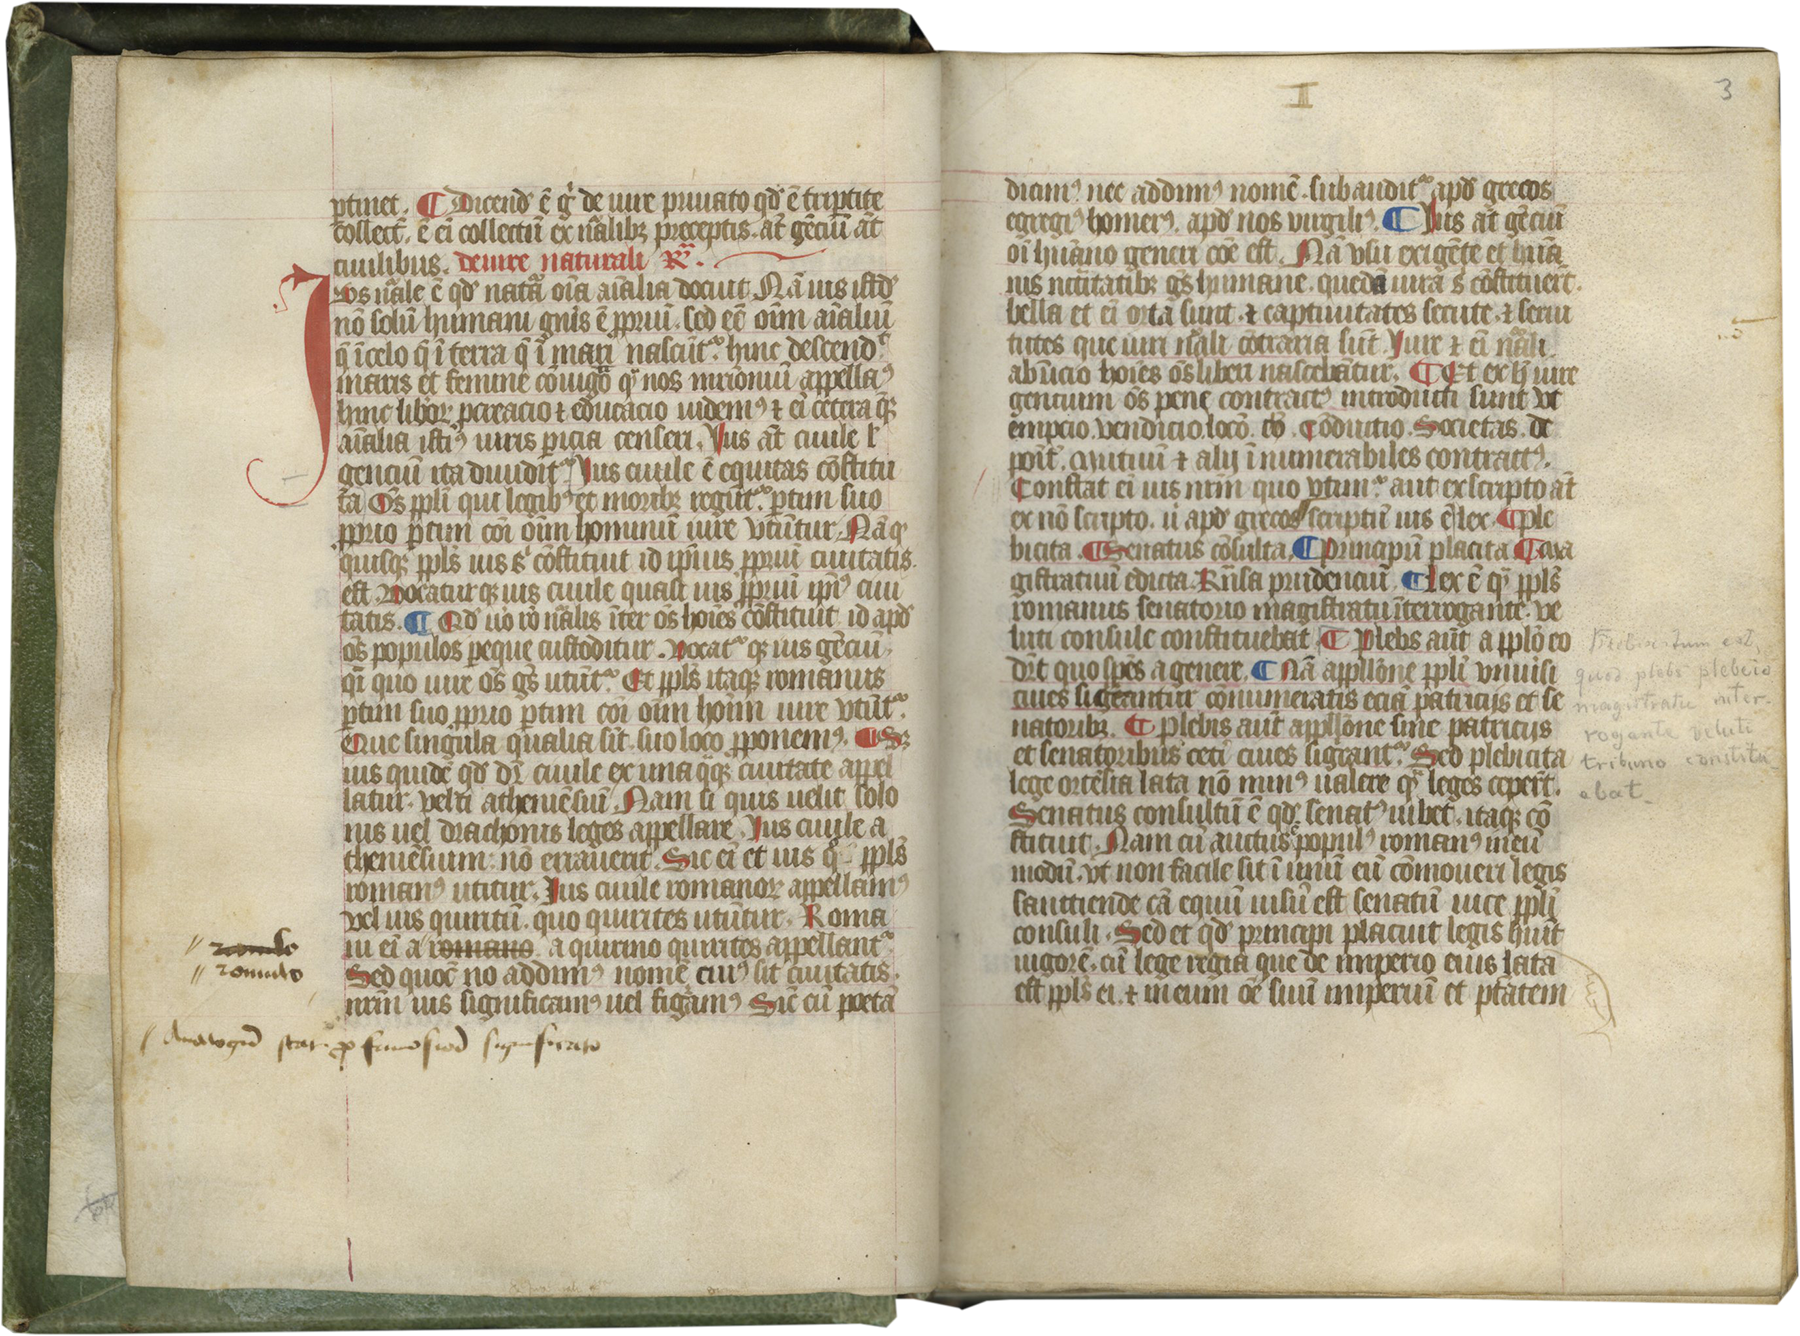 ptinet. ¶ Dicend̄ ē gͥ de iure priuato qd̄ ē triptite
collect̄. ē ei collectū ex nālibꝫ preceptis. at̄ gēciū at̄
ciuilibus. de iure naturali Rᷓ.
Ius nāle ē qd̄ natᷓa oīa aīalia docuit Nā ius istd̄
nō solū humani gn̄is ē ꝓpriū. sed ecē oīm aīaliū
q̄ ī celo q̄ ī terra q̄ ī mari nascūt᷑. hinc descend᷑t
maris et femine cōiugō qᷓ nos mr̄ioniū appellaꝰ
hinc liboꝝ ꝓcreacio ⁊ educacio uidemꝰ ⁊ ei cetera qͥꝫ
aīalia istiꝰ iuris ꝑicia censeri. Ius at̄ ciuile l̄
genciū ita diuidit᷑ Ius ciuile ē equitas cōstitu
ta Os ppl̄i qui legibꝰ et moribꝫ regūt᷑. ꝑtim suo
ꝓprio ꝑtim cōi oīm hominiū iure vtūtur. Nā qͥ
quisqꝫ ppl̄s ius sͥ cōstituit id ip̄ius ꝓpriū ciuitatis
est. vocatur qꝫ ius ciuile quasi ius ꝓpriū ip̄iꝰ ciui
tatis. ¶ Qd̄ uo rō nālis īter os hoīes cōstituit id apd̄
os populos ꝑeque custoditur. vocat᷑ qꝫ ius gēciū
qͥ quo iure os gn̄s utūt᷑. Et ppl̄s itaqꝫ romanus
ꝑtim suo ꝓprio ꝑtim cōi oīm hoīm iure vtūt᷑.
Que singula qualia sūt. suo loco ꝓponemꝰ. ¶ Sꝫ
ius quidē qd̄ dr̄ ciuile ex una qͣqꝫ ciuitate appel
latur. velti atheniēsiū. Nam si quis uelit solo
nis uel drachonis leges appellare. Ius ciuile a
theniēsium: nō errauerit. Sic ei et ius qͦ ppl̄s
romanꝰ utitur. Ius ciuile romanoꝝ appellamꝰ
vel ius quiritū. quo quirites utūtur. Roma
ni ei a romano a quirino quirites appellant᷑
// romulo
// romulo
Sed quoc̄ no addimꝰ nomē cuiꝰ sit ciuitatis.
nrm̄ ius significamꝰ uel figᷓamꝰ Sic cū poetā
significato
I
3
dicimꝰ nec addimꝰ nomē. subaudit᷑ apd̄ grecos
egregiꝰ homerꝰ. apd̄ nos virgiliꝰ. ¶ Ius at̄ gēciū
oī hūano generi cōe est. Nā vsu exigēte et hūa
nis nc̄itatibꝫ gn̄s humane. quedā iura sͥ cōstituert̄.
bella et ei orta sunt. ⁊ captiuitates secute. ⁊ seciu
tutes que iuri nāli cōtraria sūt. Iure ⁊ ei nāli
ab īicio hoīes os liberi nascebātur. ¶ Et ex h̄ iure
gencium os pene contractꝰ introducti sunt vt
empcio. vendicio. locō. Coductio. Societas. de
poīt. Mutiuū ⁊ alij īnumerabiles contractꝰ.
Constat ei ius nrm̄ quo vtimꝰ aut ex scripto at̄
ex nō scripto. ii apd̄ grecos scriptū ius ē lex. ¶ ple
bicita. ¶ Senatus cōsulta. ¶ principū placita ¶ ma
gistratiuū edicta. Rn̄sa prudenciū. ¶ lex ē qᷓ ppl̄s
romanus senatorio magistratu īterrogante. ve
luti consule constituebat ¶ Plebs aūt a ppl̄o eo
drt̄ quo spēs a genere. ¶ Nā appl̄lōne ppl̄i vniuisi
ciues sigantur cōnumeratis eciā patricijs et se
natoribꝫ. ¶ Plebis aūt appl̄lōne sine patricijs
et senatoribus ceti ciues sigant᷑. Sed plebicita
lege ortēsia lata nō minꝰ ualere qͣ leges ceperūt.
Senatus consultū ē qd̄ senatꝰ iubet. itaqꝫ cō
stituit. Nam cū auctus ē populꝰ romanꝰ in eū
modū. vt non facile sit ī unū eū cōmoueri legis
sancciende cā equū uisū est senatū uice ppl̄i
consuli. Sed et qd̄ principi placuit legis h̄uit
uigorē. cū lege regia que de imperio eius lata
est ppl̄s ei. ⁊ in eum oē suū imperiū et ptatem
Plebiscitum est,
quod plebs plebeio
magistratu inter-
rogante veluti
tribuno constitu
ebat.